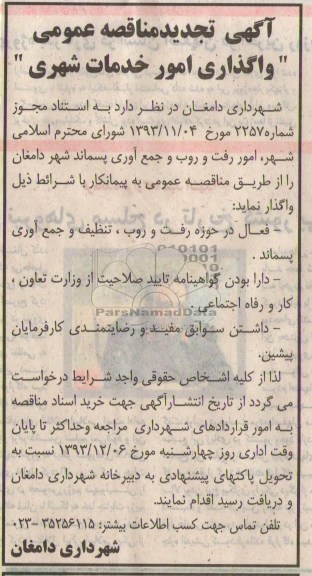 آگهی تجدیدمناقصه عمومی
" واگذاری امور خدمات شهری "
شهرداری دامغان در نظر دارد به استناد مجوز
شماره۲۲۵۷ مورخ ۱۳۹۳/۱۱/۰۴ شورای محترم اسلامی
شهر، امور رفت و روب و جمع آوری پسماند شهر دامغان
را از طریق مناقصه عمومی به پیمانکار با شرائط ذیل
واگذار نماید:
- فعال در حوزه رفت و روب ، تنظیف و جمع آوری
پسماند .
- دارا بودن گواهینامه تایید صلاحیت از وزارت تعاون ،
کار و رفاه اجتماعی .
ParsNamadData
- داشتن سوابق مفید و رضایتمندی کارفرمایان
پیشین.
لذا از کلیه اشخاص حقوقی واجد شرایط درخواست
می گردد از تاریخ انتشارآگهی جهت خرید اسناد مناقصه
به امور قراردادهای شهرداری مراجعه وحداکثر تا پایان
وقت اداری روز چهارشنبه مورخ ۱۳۹۳/۱۲/۰۶ نسبت به
تحویل پاکتهای پیشنهادی به دبیرخانه شهرداری دامغان
و دریافت رسید اقدام نمایند.
تلفن تماس جهت کسب اطلاعات بیشتر: ۳۵۲۵۶۱۱۵ -۰۲۳
شهرداری دامغان